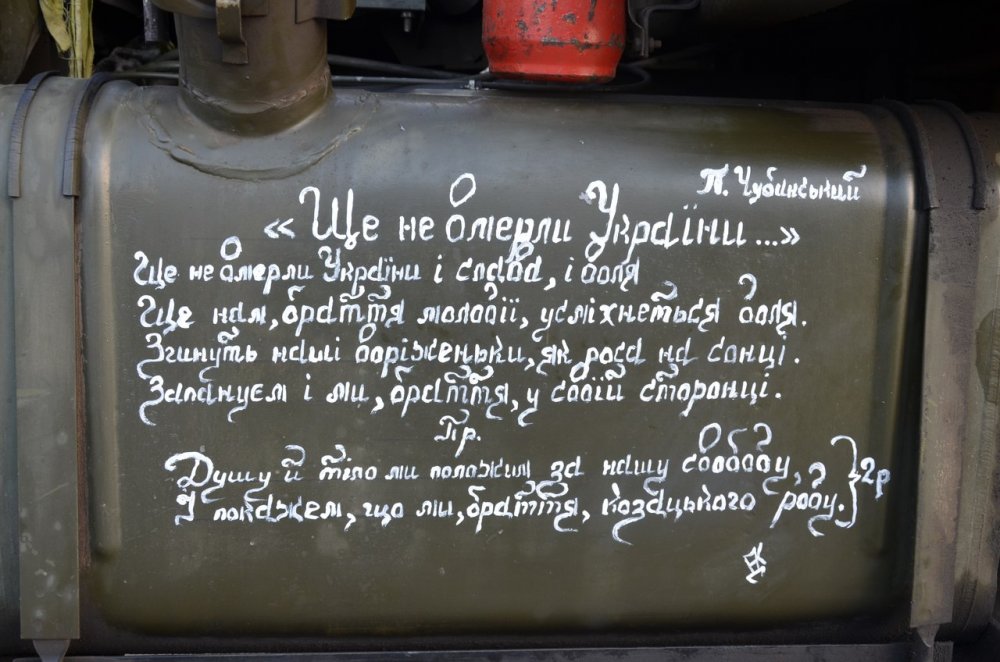 П. Чубинський
«Ще не вмерли України...»
Ще не вмерли України і слава, і воля
Ще нам, браття молодії, усміхнеться доля.
Згинуть наші воріженьки, як роса на сонці.
Запануєм і ми, браття, у своїй сторонці.
Пр.
Душу й тіло ми положим за нашу свободу,
І покажем, що ми, браття, козацького роду. } 2р